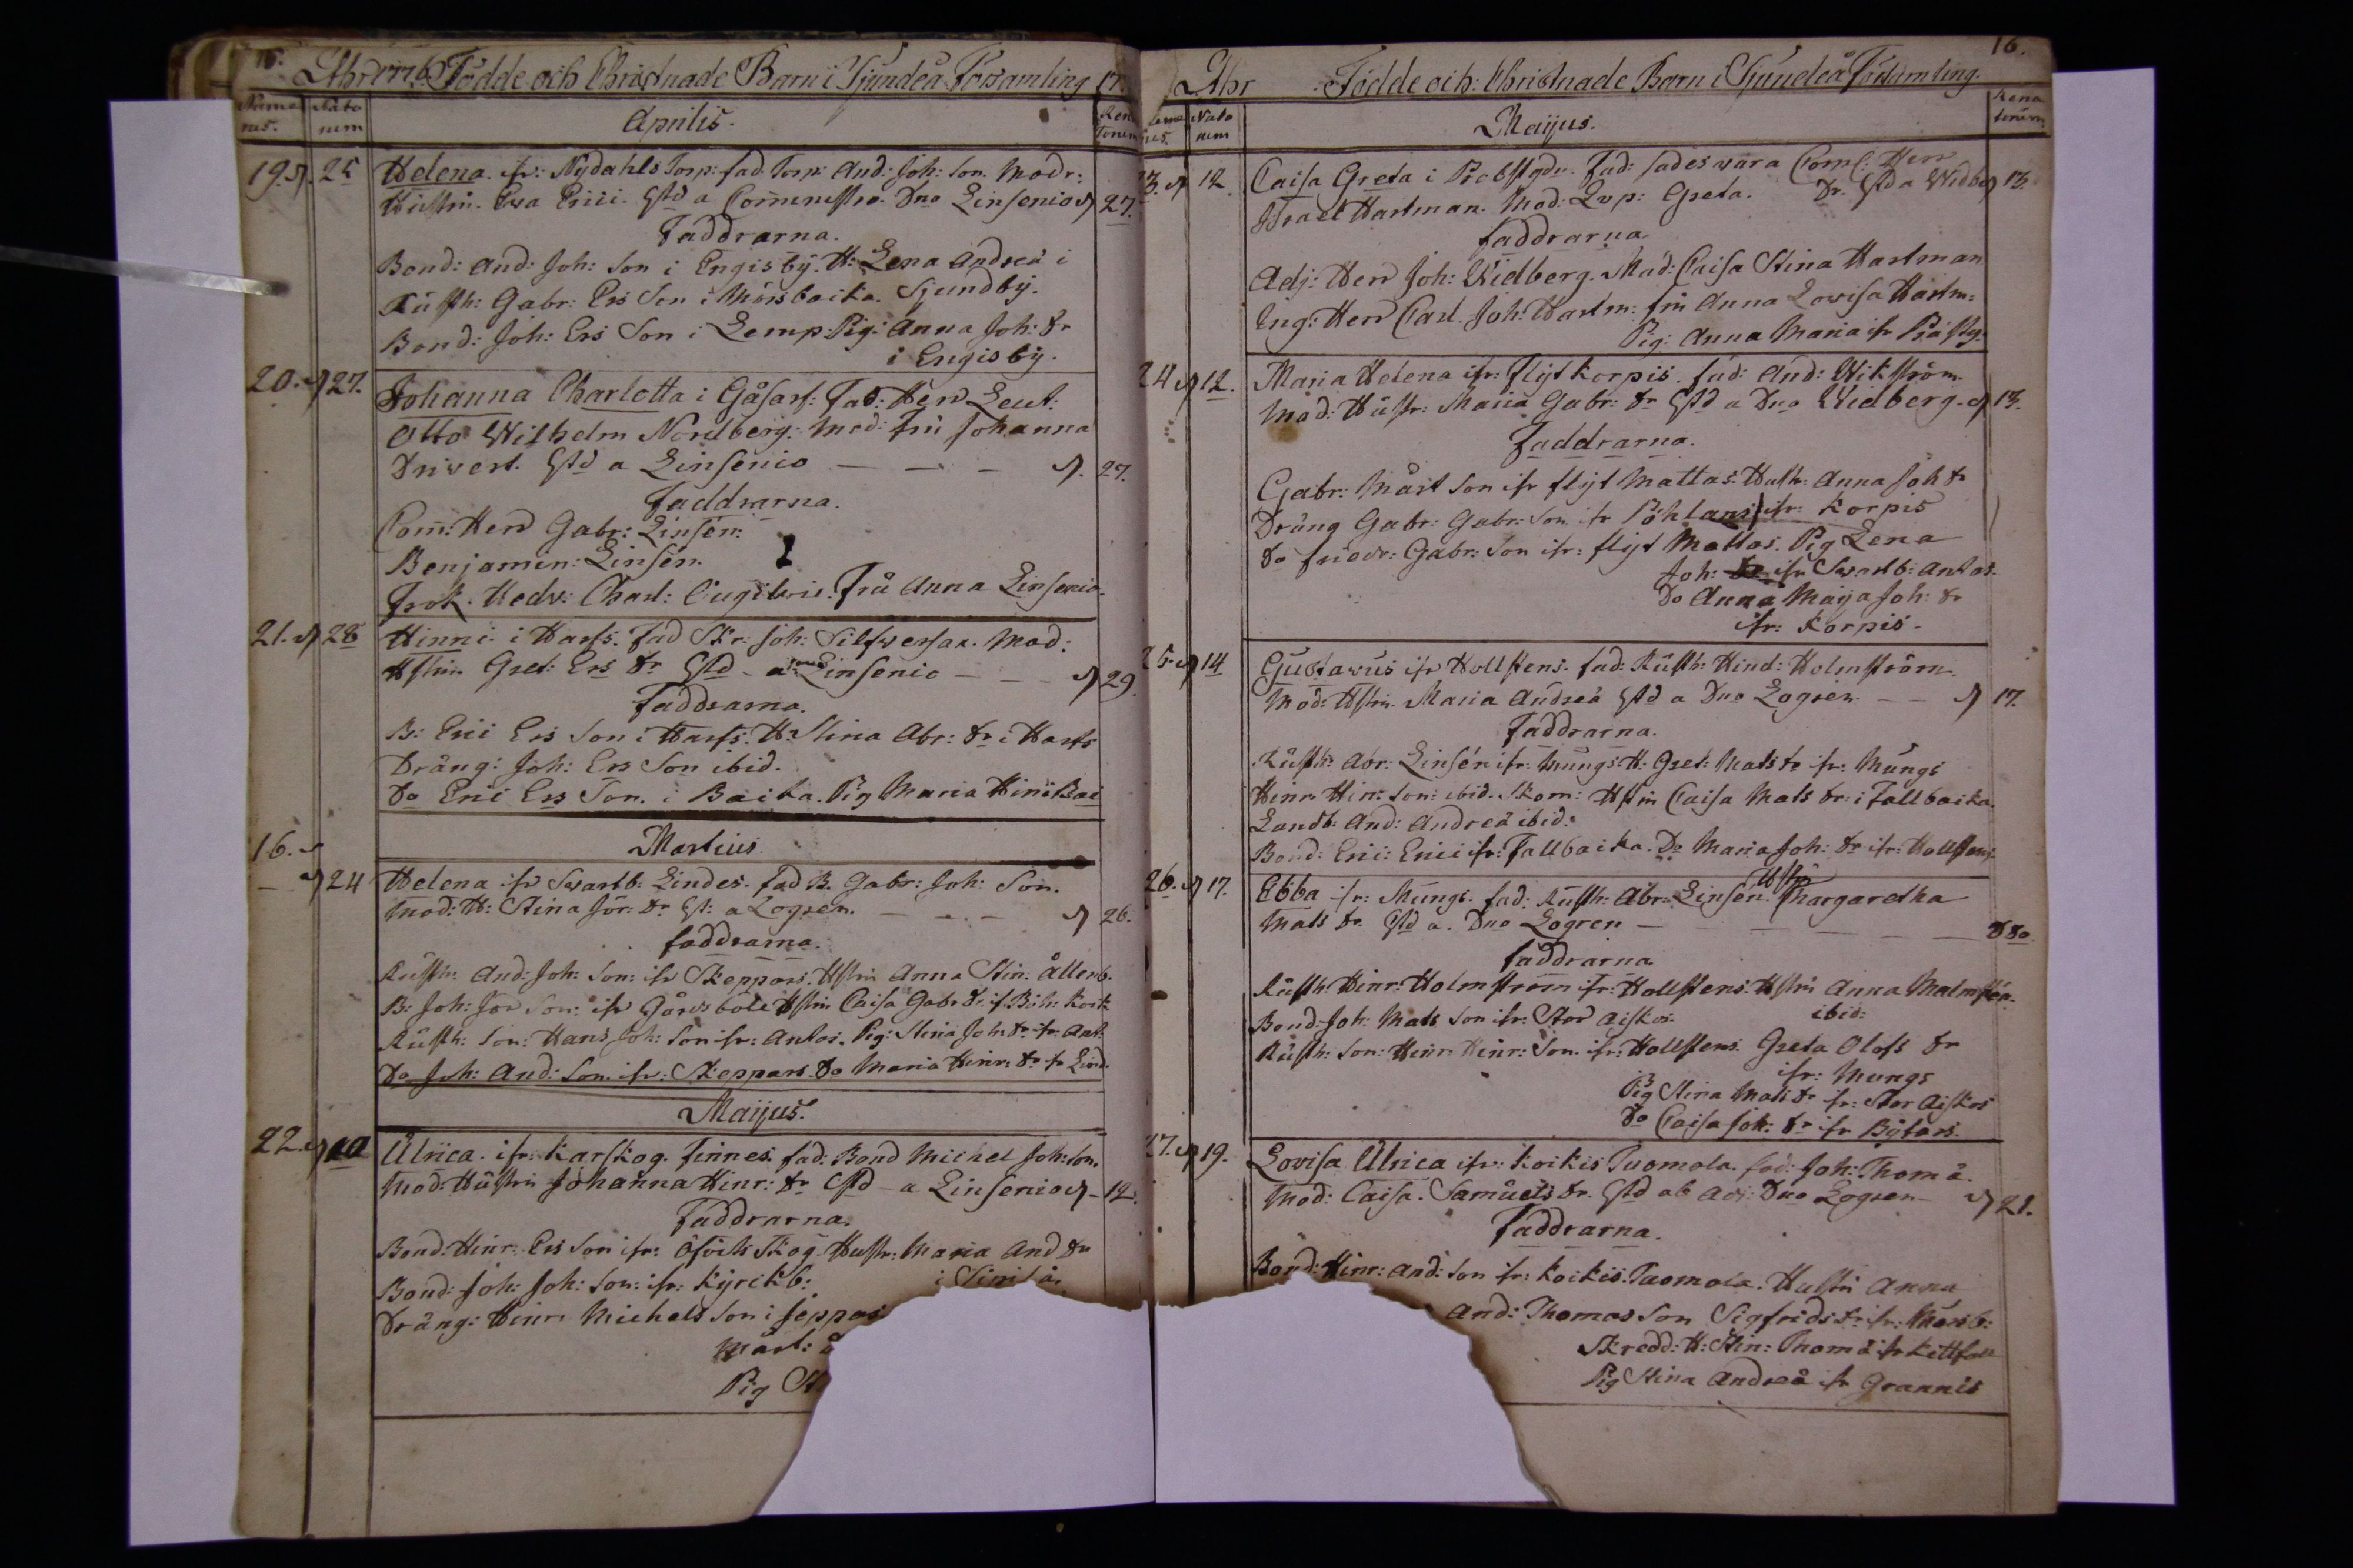 15. Åhr 1776. Födde och Christnade Barn i Sjundeå Församling 17.
Nume rus. Nato rum Aprilis. Rena torum
19. 25 Helena ifr: Nÿdahls Torp: fad Torp: And: Joh: Son. Modr:
Hustru. Ewa Erici. Gtd a Comministro. Dno Linsenio 27.
Faddrarna.
Bond: And: Joh: Son i Engisbÿ. H: Lena Andreä i
Rusth: Gabr: Ers Son i Mörsbacka. Sjundbÿ.
Bond: Joh: Ers Son i Lemp: Pig: Anna Joh: dr
i Engisbÿ.
20. 27. Johanna Charlotta i Gåsars: Fad: Herr Leut:
Otto Wilhelm Nordberg: Mod: Fru Johanna
Drivert. Gtd a Linsenio — — — 27.
Faddrarna.
Com: Herr Gabr: Linsén:
Benjamin: Linsén.
Frök. Hedv: Charl: Fru Anna Linsenio
21. 28 Hinric i Harfs. fad Skr: Joh: Silfwersax. Mod:
Hstru Gret: Ers dr Gtd a Dno Linsenio — — 29.
Faddrarna.
B: Eric Ers Son i Harfs. H: Stina Abr: dr i Harfs
Dräng: Joh: Ers Son ibid.
Do Eric Ers Son. i Backa. Pig Maria Hin
Martius.
16.
— 24 Helena ifr Swartb: Lindes. fad B. Gabr: Joh: Son.
Mod: H: Stina Jör: dr Gt: a Logren. — — — 26.
faddrarna.
Rusth: And: Joh: Son: ifr Skeppars. Hstru Anna Stin:
B: Joh: Jör Son: ifr Gårdsböle Hstru Caisa Gabr dr. if.
Rusth: Son: Hans Joh: Son ifr: Antos. Pig: Stina Joh: dr ifr Ant:
Do Joh: And: Son. ifr: Skeppars. Do Maria Hinr: dr fr Lind.
Maijus.
22. 10 Ulrica. ifr: Karskog. Finnes. fad: Bond Michel Joh: Son.
Mod: Hustru Johanna Hinr: dr Gtd a Linsenio — 12.
Faddrarna.
Bond: Hinr: Ers Son ifr: Skog. Hustr: Maria And dr
Bond: Joh: Joh: Son: ifr: Kyrckb: i
Dräng: Hinr: Michels Son i Seppas
Mårt:
Pig St
16.
Åhr Födde och: Christnade Barn i Sjundeå Församling.
Nume rus. Nato rum Maijus. Rena torum
23. 12 Caisa Greta i Probstgdn. Fad: sades vara Com: Herr
Israel Hartman. Mod: Lvp: Greta. Dr. Gtd a Widbe 13.
faddrarna
Adj: Herr Joh: Widberg. Mad: Caisa Stina Hartman
Ing: Herr Carl Joh: Hartm: fru Anna Lowisa Hartm:
Pig: Anna Maria ifr Prästg:
24 12. Maria Helena ifr: Flÿt Korpis. fad: And: Wikström.
Mod: Hustr: Maria Gabr: dr Gtd a Dno Widberg. 13.
Faddrarna.
Gabr: Mårt Son ifr flÿt Mattas. Hustr: Anna Joh dr
Dräng Gabr: Gabr: Son ifr Pöhlans ifr: Korpis
Do Friedr: Gabr: Son ifr: flÿt Mattas. Pig Lena
Joh: dr ifr Swartb: Antos.
Do Anna Maja Joh: dr
ifr: Korpis.
25. 14 Gustavus ifr Hollstens. fad: Rusth: Hind: Holmström.
Mod: Hstru. Maria Andreä Gtd a Dno Logren — — 17.
Faddrarna.
Rusth: Abr: Linsén ifr: Mungs. H: Gret: Mats dr fr: Mungs
Hinr: Hin: Son: ibid. Skom: Hstru Caisa Mats dr: i Fallbacka.
Landb: And: Andreä ibid:
Bond: Eric: Erici ifr: Fallbacka. Do Maria Joh: dr ifr: Hollstens.
26. 17. Ebba ifr: Mungs. fad: Rusth: Abr: Linsén. Hstru Margaretha
Mats dr. Gtd a. Dno Logren — — — — — Dto
faddrarna
Rusth: Hinr: Holmström ifr: Hollstens. Hstru Anna Malmstén.
Bond: Joh: Mats Son ifr: Stor Aiskos. ibid:
Rusth: Son: Hinr: Hinr: Son. ifr: Hollstens. Greta Olofs dr
ifr: Mungs
Pig Stina Mats dr fr: Stor Aiskos
Do Caisa Joh: dr ifr Bÿtars.
27. 19. Lovisa Ulrica ifr: Koikis Tuomola. fad: Joh: Thomä.
Mod: Caisa. Samuels dr. Gtd ab Adj: Dno Logren — 21.
Faddrarna.
Bond: Hinr: And: Son ifr: Koikis. Tuomola. Hustru Anna
And: Thomas Son Sigfrids dr. ifr: Mörsb:
Skredd: H: Stin: Thomä ifr
Pig Stina Andreä ifr Grannis